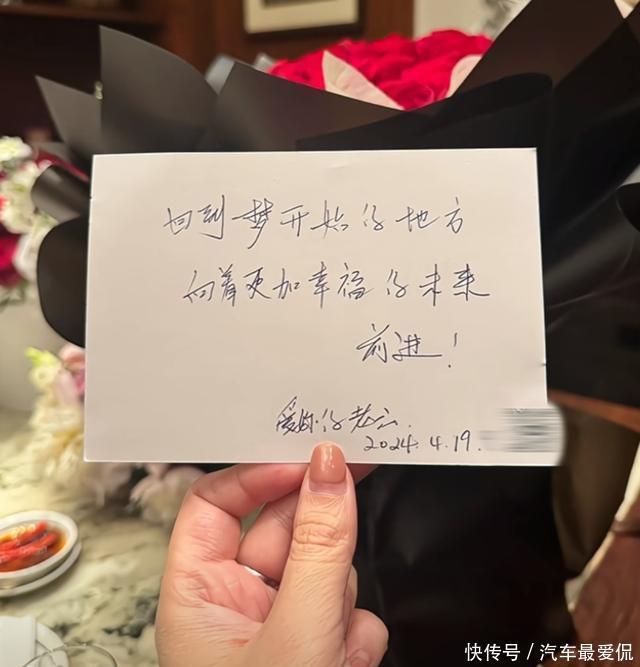 回到梦开始的地方
向着更加幸福的未来
前进！
爱你的老公.
2024.4.19.
快传号／汽车最爱侃